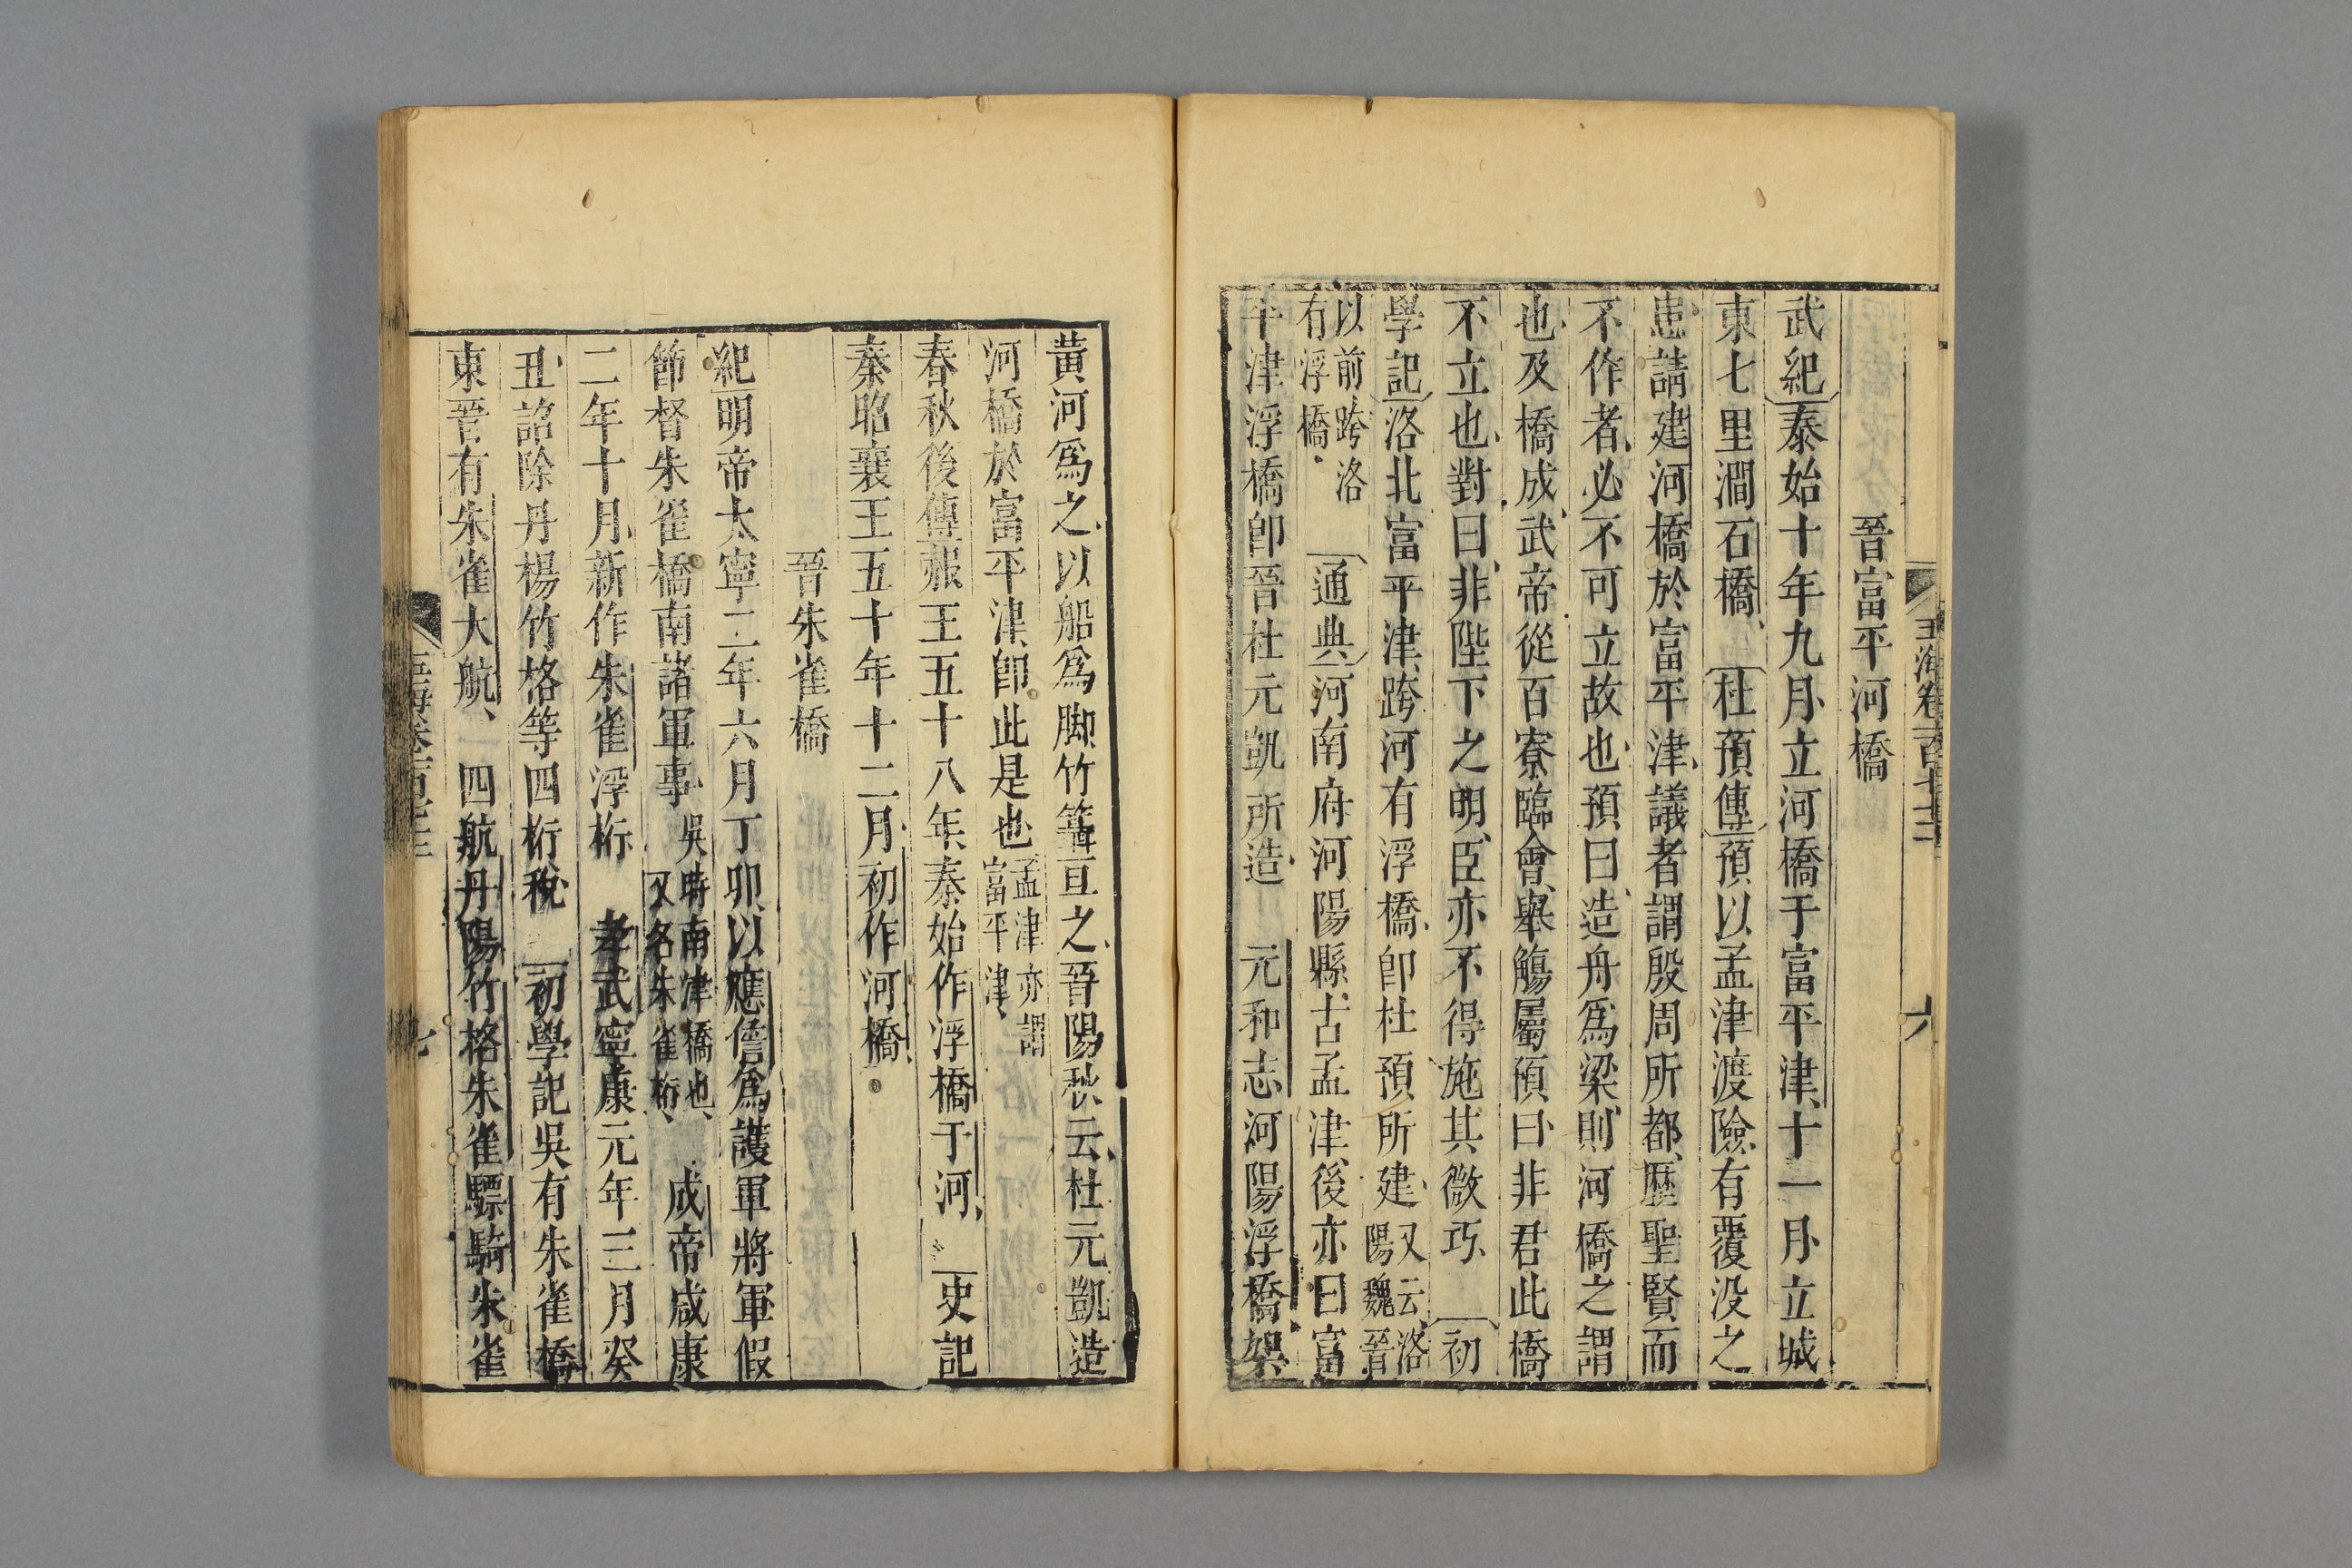 玉海卷一百七十二
六
晉富平河橋
武紀泰始十年九月立河橋于富平津十一月立城
東七里澗石橋 杜預傳預以孟津渡險有覆没之
患請建河橋於富平津議者謂殷周所都歷聖賢而
不作者必不可立故也預曰造舟爲梁則河橋之謂
也及橋成武帝從百寮臨會舉觴屬預曰非君此橋
不立也對曰非陛下之明臣亦不得施其微巧 初
學記洛北富平津跨河有浮橋即杜預所建又云洛
陽魏晉
以前跨洛
有浮橋 通典河南府河陽縣古孟津後亦曰富
平津浮橋即晉杜元凱所造 元和志河陽浮橋架
黄河爲之以船爲脚竹䉶亘之晉陽秋云杜元凱造
河橋於富平津即此是也孟津亦謂
富平津
春秋後傳赧王五十八年秦始作浮橋于河 史記
秦昭襄王五十年十二月初作河橋
晉朱雀橋
紀明帝太寧二年六月丁卯以應詹爲護軍將軍假
節督朱雀橋南諸軍事吳時南津橋也
又名朱雀桁 成帝咸康
二年十月新作朱雀浮桁 孝武寧康元年三月癸
丑詔除丹楊竹格等四桁稅 初學記吳有朱雀橋
東晉有朱雀大航 四航丹陽竹格朱雀驃騎朱雀
七